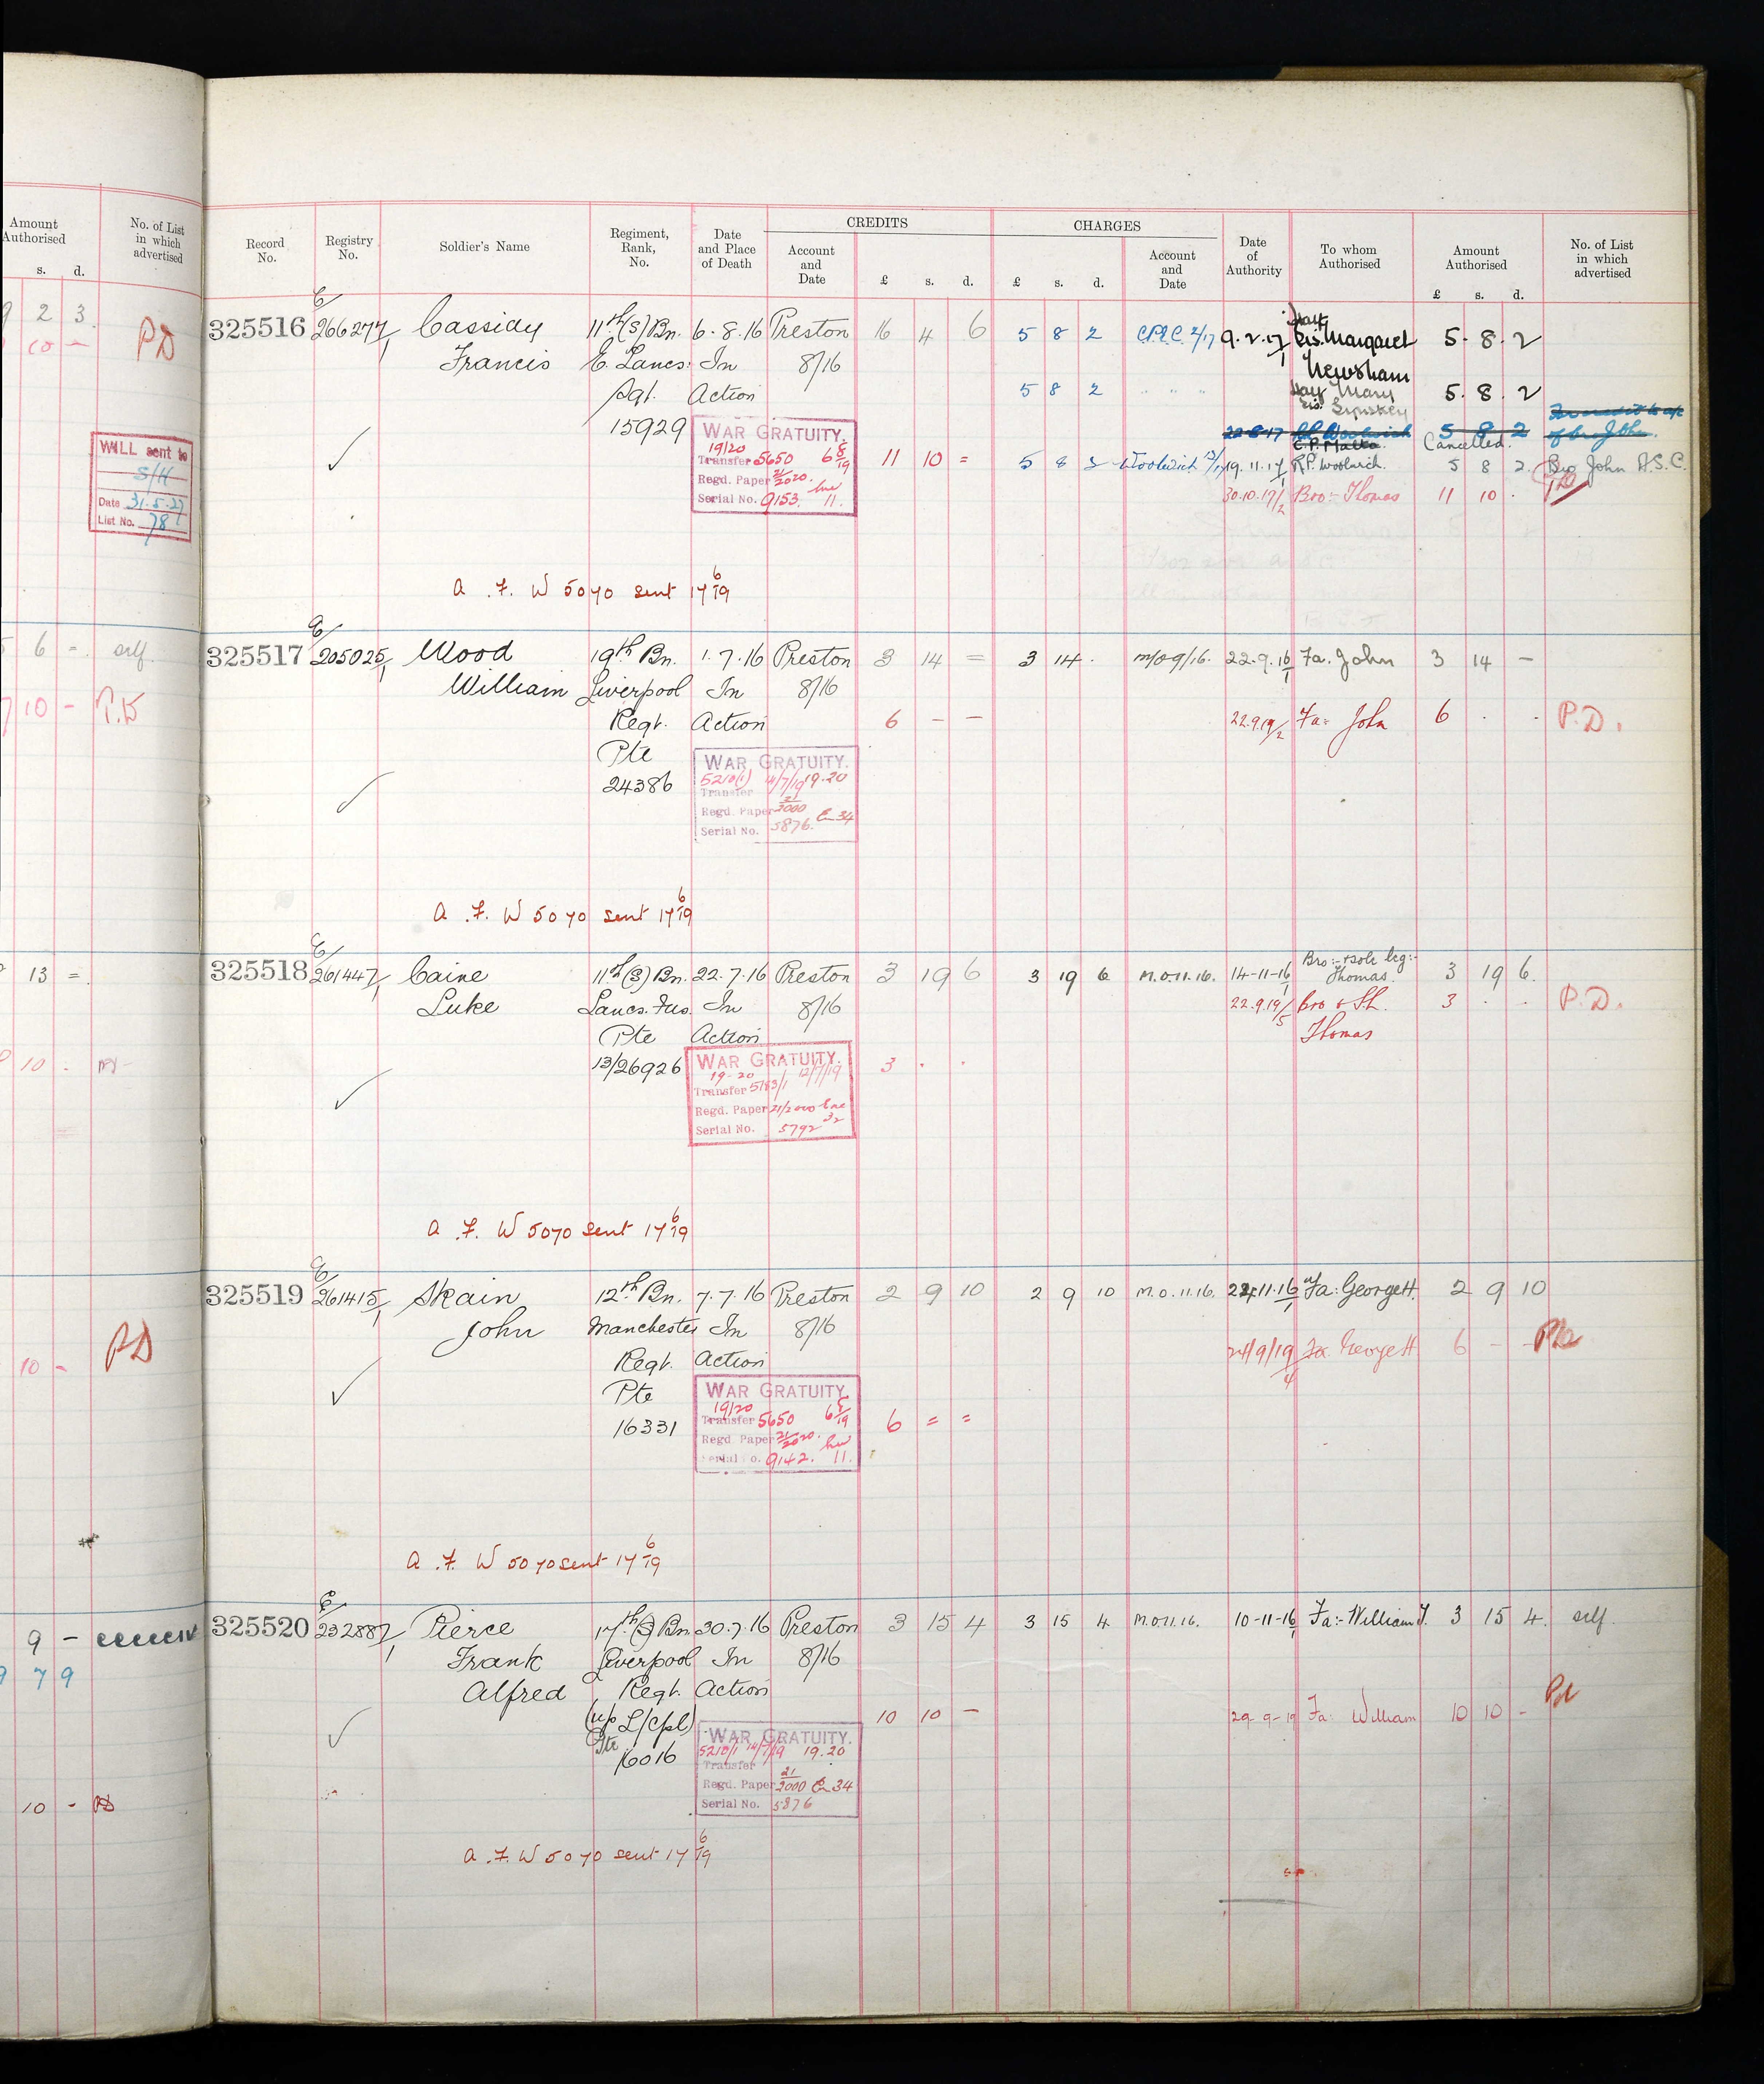 Amount Authorised
s. d.
No. of List in which advertised
2 3
PD
10 -
WILL sent to
S/H
Date 31.5.27
List No. 78
6 = self
10 -
13 =
10 .
10 - PD
9 -
7 9
10 - PD
CREDITS
CHARGES
Record No.
Registry No.
Soldier's Name
Regiment, Rank, No.
Date and Place of Death
Account and Date
£ s. d.
£ s. d.
Account and Date
Date of Authority
To whom Authorised
Amount Authorised
£ s. d.
No. of List in which advertised
325516 E/ 266277/1 Cassidy 11th (S) Bn. 6.8.16 Preston 16 4 6 5 8 2 C.P.&C. 2/17 9.2.17/1 Sis. Margaret 5. 8. 2
Francis E. Lancs. In 8/16 Newsham
Sgt. Action 5 8 2 " " " Sis. Mary 5. 8. 2
15929
22-8-17 R.P. Woolwich 5 8 2
C.P. Malta Cancelled.
WAR GRATUITY.
19/20
Transfer 5650 6 8/19
Regd. Paper 21/2020.
Serial No. 9153. 11.
11 10 = 5 8 2 Woolwich 19.11.17/1 R.P. Woolwich. 5 8 2. Bro John A.S.C.
30.10.19/2 Bro:- Thomas 11 10 .
A.F. W 5070 sent 17 6/19
325517 E/ 205025/1 Wood 19th Bn. 1.7.16 Preston 3 14 = 3 14 . M/O 9/16. 22.9.16/1 Fa. John 3 14 -
William Liverpool In 8/16
Regt. Action 6 - - 22.9.19/2 Fa: John 6 . . P.D.
Pte
24386
WAR GRATUITY.
5210(1) 14/7/19 19.20
Transfer
Regd. Paper 21/2000 34
Serial No. 5876.
A.F. W 5070 sent 17 6/19
325518 E/ 261447/1 Caine 11th (S) Bn. 22.7.16 Preston 3 19 6 3 19 6 M.O.11.16. 14-11-16/1 Bro:- & sole leg:- Thomas. 3 19 6.
Luke Lancs. Fus. In 8/16 22.9.19/5 bro & S.L. Thomas 3 . . P.D.
Pte Action
13/26926 3 . .
WAR GRATUITY.
19-20 12/7/19
Transfer 5183/1
Regd. Paper 21/2000 32
Serial No. 5792
A.F. W 5070 sent 17 6/19
325519 E/ 261415/1 Skain 12th Bn. 7.7.16 Preston 2 9 10 2 9 10 M.O.11.16. 22.11.16/1 Fa: George H. 2 9 10
John Manchester In 8/16
Regt. Action 24/9/19/4 Fa. George H 6 - -
Pte
16331 6 = =
WAR GRATUITY.
19/20
Transfer 5650 6 8/19
Regd. Paper 21/2020.
Serial No. 9142. 11.
A.F. W 5070 sent 17 6/19
325520 E/ 232887/1 Pierce 17th (S) Bn. 30.7.16 Preston 3 15 4 3 15 4 M.O.11.16. 10-11-16/1 Fa:- William J. 3 15 4. self
Frank Liverpool In 8/16
Alfred Regt. Action
(u/p L/Cpl) 10 10 - 29-9-19 Fa: William 10 10 -
Pte
16016
WAR GRATUITY.
5210/1 14/7/19 19.20
Transfer
Regd. Paper 21/2000 34
Serial No. 5876
A.F. W 5070 sent 17 6/19